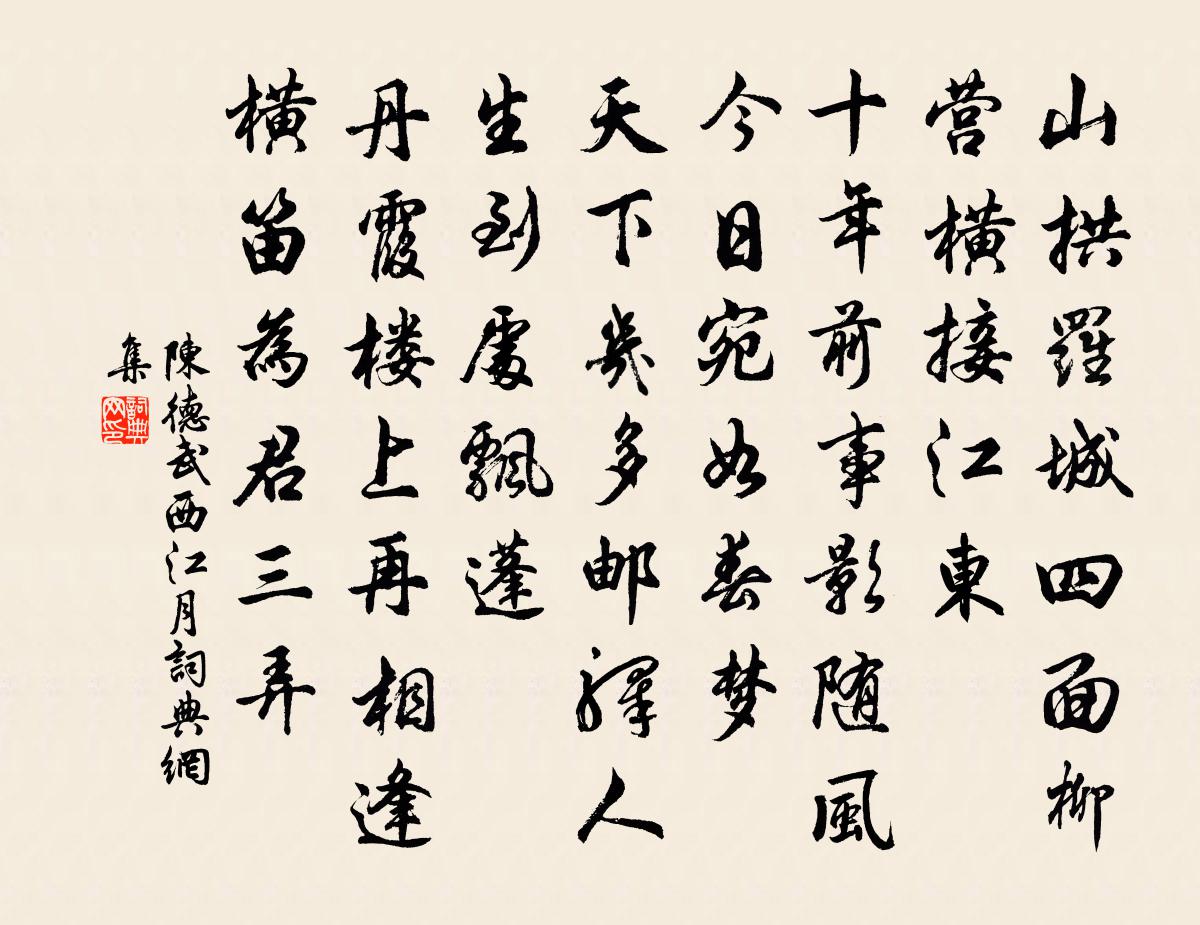 山拱羅城四面柳
营橫接江東
十年前事影随風
今日宛如春梦
天下幾多邮驛人
生到處飄蓬
丹霞楼上再相逢
橫笛為君三弄
陳德武西江月詞典網
集
詞典
网印